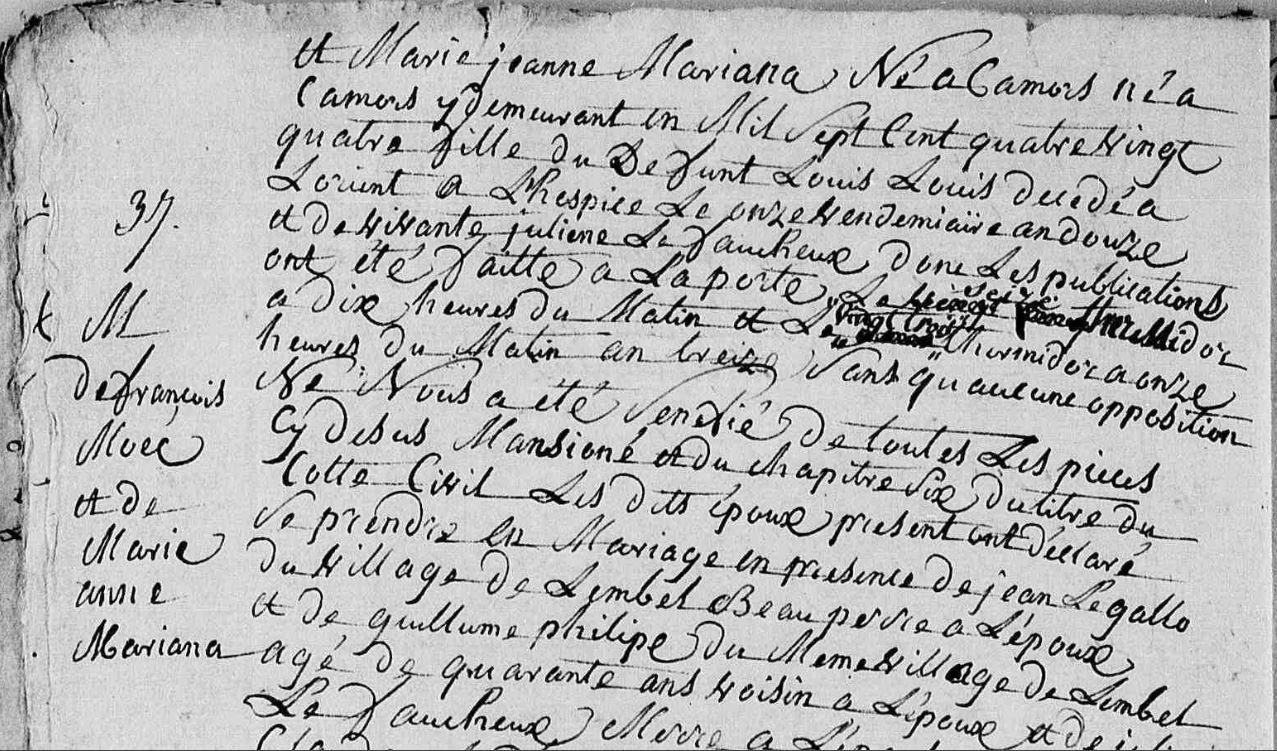 et Marie jeanne Mariana Né a Camors né a
Camors y demeurant en Mil Sept Cent quatre Vingt
quatre fille du Defunt Louis Louis decedé a
Lorient a L'hospice Le onze Vendemiaire an douze
et de vivante juliene Le faucheux donc Les publications
ont été faitte a La porte Le Messidor
a dix heures du Matin et Le vingt trois thermidor a onze
heures du Matin an treize Sans qu'aucune opposition
Ne Nous a été de toutes Les pieces
Cy desus Mansioné et du chapitre Six du titre du
Cotte Civil Les dits époux present ont déclaré
Se prendre en Mariage en presence de jean Le gallo
du Village de Lembel Beau perre a L'époux
et de guillume philipe du Meme Village de Lembel
agé de quarante ans Voisin a L'époux et de
Le faucheux Merre a
37.
M
de françois
Moëc
et de
Marie
anne
Mariana